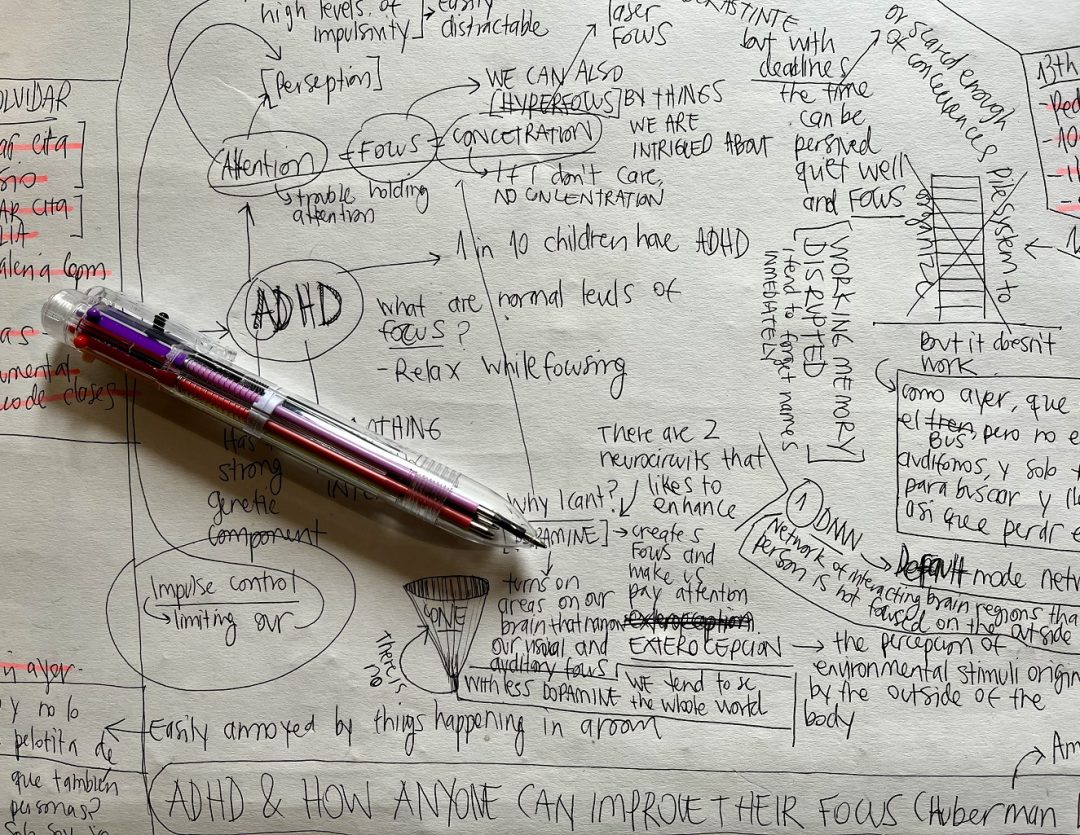 high levels of
impulsivity
easily
distractable
[Perseption]
laser
FOWS
WE CAN ALSO
[HYPERFOWS] BY THINGS
WE ARE
INTRIGUED ABOUT
Attention = FOWS = CONCETRATION
trouble holding
attention
If I don't care,
NO CONCENTRATION
but with
deadlines
the time
can be
persived
quiet well
and FOWS
or scared enough
of
Pilesystem to
organize
But it doesn't
work
13th
OLVIDAR
cita
CITA
6pm
closes
ADHD
1 in 10 children have ADHD
What are normal levels of
focus?
- Relax while focusing
[WORKING MEMORY
DISRUPTED]
I tend to forget names
INMEDIATELY
como ayer, que
el tren, pero no e
BUS
audifonos, y solo
para buscar y
asi que perdi e
Has a
strong
genetic
component
There are 2
neurocircuits that
likes to
enhance
Why I cant?
creates
FOWS and
make us
pay attention
exteroception
EXTEROCEPCION
the percepcion of
environmental stimuli origin
by the outside of the
body
1 DMN
Default mode netw
Network of interacting brain regions tha
person is not focused on the outside
Impulse control
limiting our
CONE
There is
no
turns on
areas on our
brain that narrow
our visual and
auditory fows
WITH LESS DOPAMINE
WE tend to se
the whole world
Easily annoyed by things happening in a room
ayer
y no lo
pelotita de
que tambien
personas?
Am
ADHD & HOW ANYONE CAN IMPROVE THEIR FOCUS (Huberman